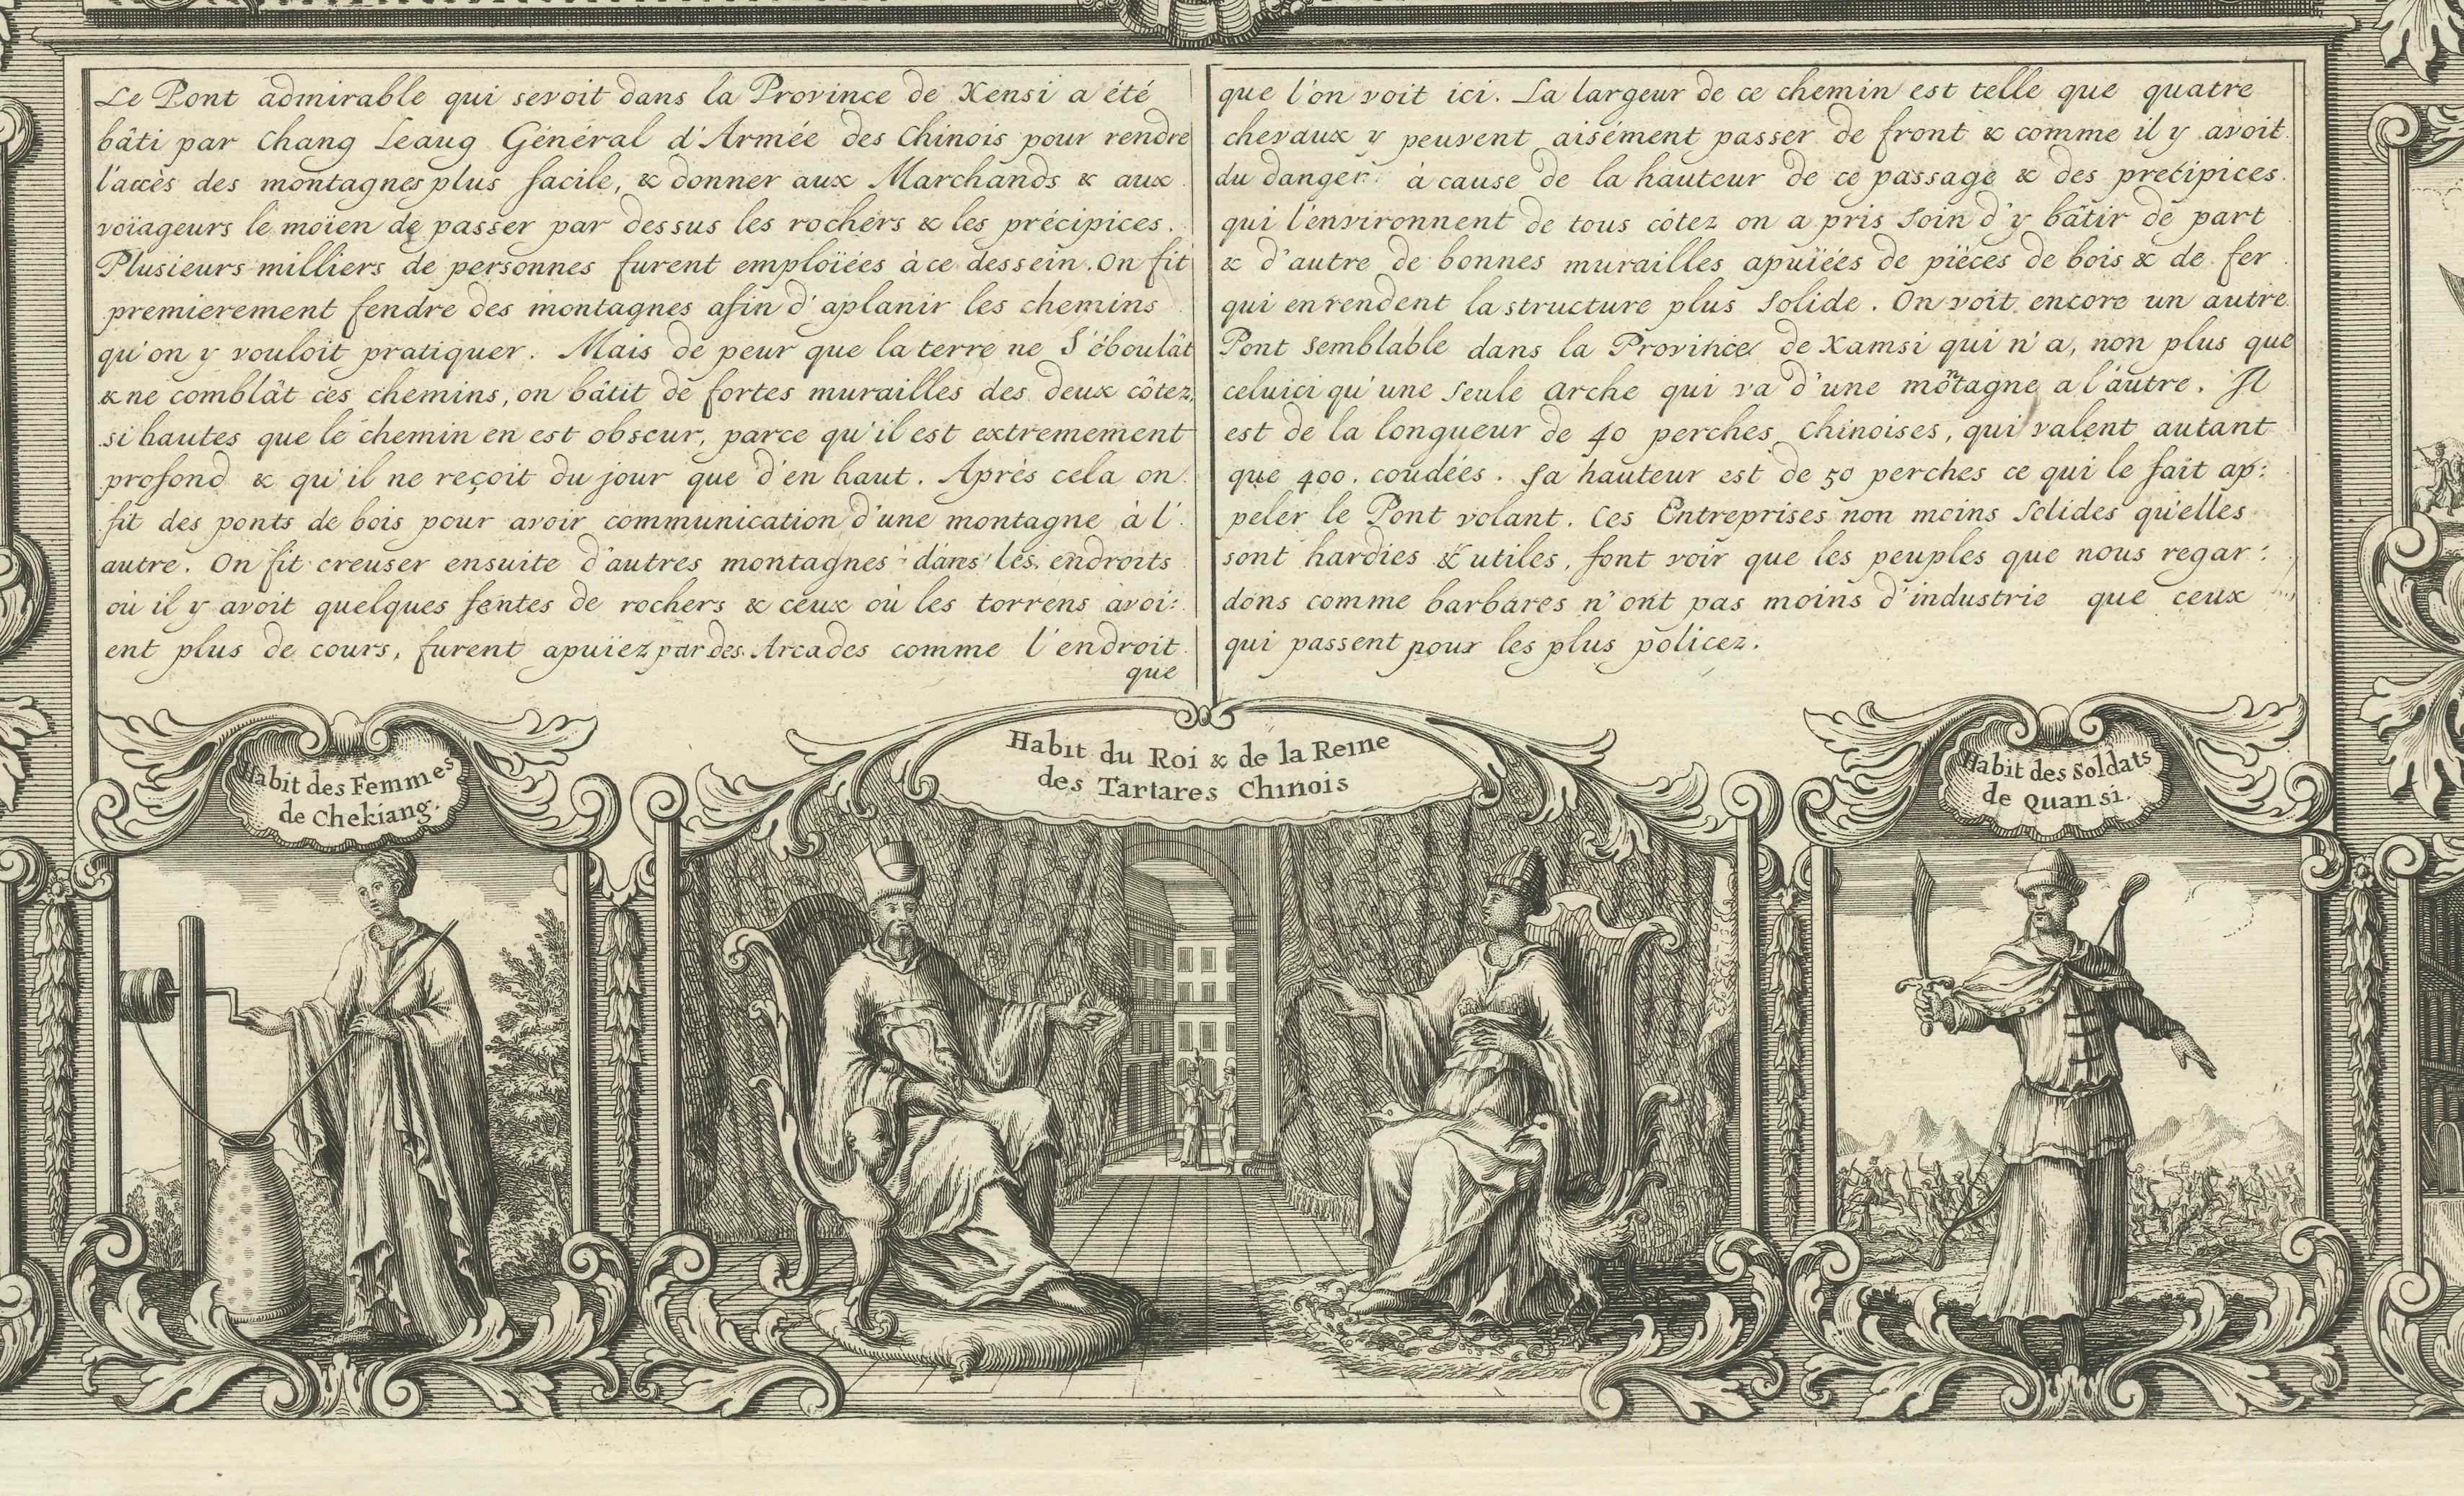 Le Pont admirable qui sevoit dans la Province de Xensi a été
bâti par Chang Leaug Général d'Armée des Chinois pour rendre
l'accès des montagnes plus facile, & donner aux Marchands & aux
voïageurs le moïen de passer par dessus les rochers & les précipices.
Plusieurs milliers de personnes furent emploïées à ce dessein. On fit
premierement fendre des montagnes afin d'aplanir les chemins
qu'on y vouloit pratiquer. Mais de peur que la terre ne S'éboulât
& ne comblât ces chemins, on bâtit de fortes murailles des deux côtez,
si hautes que le chemin en est obscur, parce qu'il est extremement
profond & qu'il ne reçoit du jour que d'en haut. Après cela on
fit des ponts de bois pour avoir communication d'une montagne à l'
autre. On fit creuser ensuite d'autres montagnes dans les endroits
où il y avoit quelques fentes de rochers & ceux où les torrens avoi:
ent plus de cours, furent apuïez par des Arcades comme l'endroit
que
que l'on voit ici. La largeur de ce chemin est telle que quatre
chevaux y peuvent aisément passer de front & comme il y avoit
du danger à cause de la hauteur de ce passage & des precipices
qui l'environnent de tous côtez on a pris Soin d'y bâtir de part
& d'autre de bonnes murailles apuïées de pièces de bois & de fer
qui en rendent la structure plus Solide. On voit encore un autre
Pont Semblable dans la Province de Xamsi qui n'a, non plus que
celuici qu'une Seule Arche qui va d'une mõtagne a l'autre. Il
est de la longueur de 40 perches Chinoises, qui valent autant
que 400. coudées. Sa hauteur est de 50 perches ce qui le fait ap:
peler le Pont volant. Ces Entreprises non moins Solides qu'elles
sont hardies & utiles, font voir que les peuples que nous regar:
dons comme barbares n'ont pas moins d'industrie que ceux
qui passent pour les plus policez.
Habit des Femmes
de Chekiang.
Habit du Roi & de la Reine
des Tartares Chinois
Habit des Soldats
de Quansi.